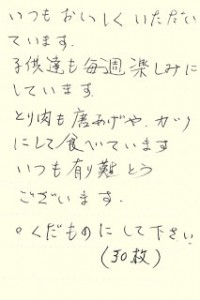 いつもおいしくいただい
ています。
子供達も毎週楽しみに
しています
とり肉も唐あげや、カツ
にして食べています
いつも有り難とう
ございます。
○くだものにして下さい
(30枚)